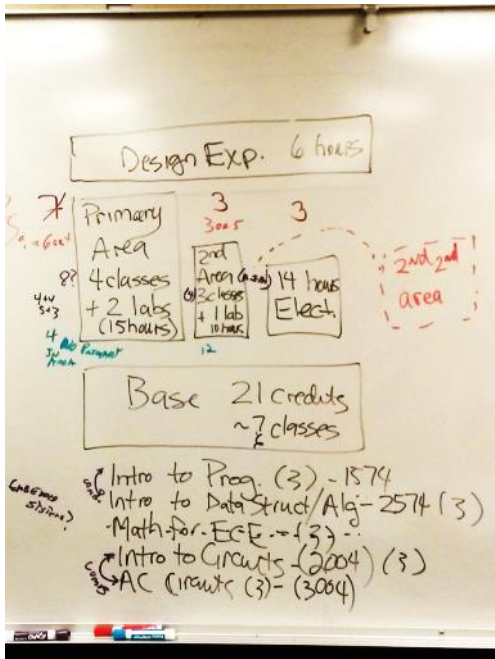 Design Exp. 6 hours
3
3
Primary
Area
4 classes
+ 2 labs
(15 hours)
8?
4+4
5+3
4
IN
AREA
3 or 5
2nd
Area
3 classes
+ 1 lab
10 hours
12
14 hours
Elect.
2nd 2nd
area
Base 21 credits
~7 classes
Intro to Prog. (3) - 1574
Intro to Data Struct/Alg - 2574 (3)
Math for ECE - (3)
Intro to Circuits - (2004) (3)
AC Circuits (3) - (3004)
EXPO